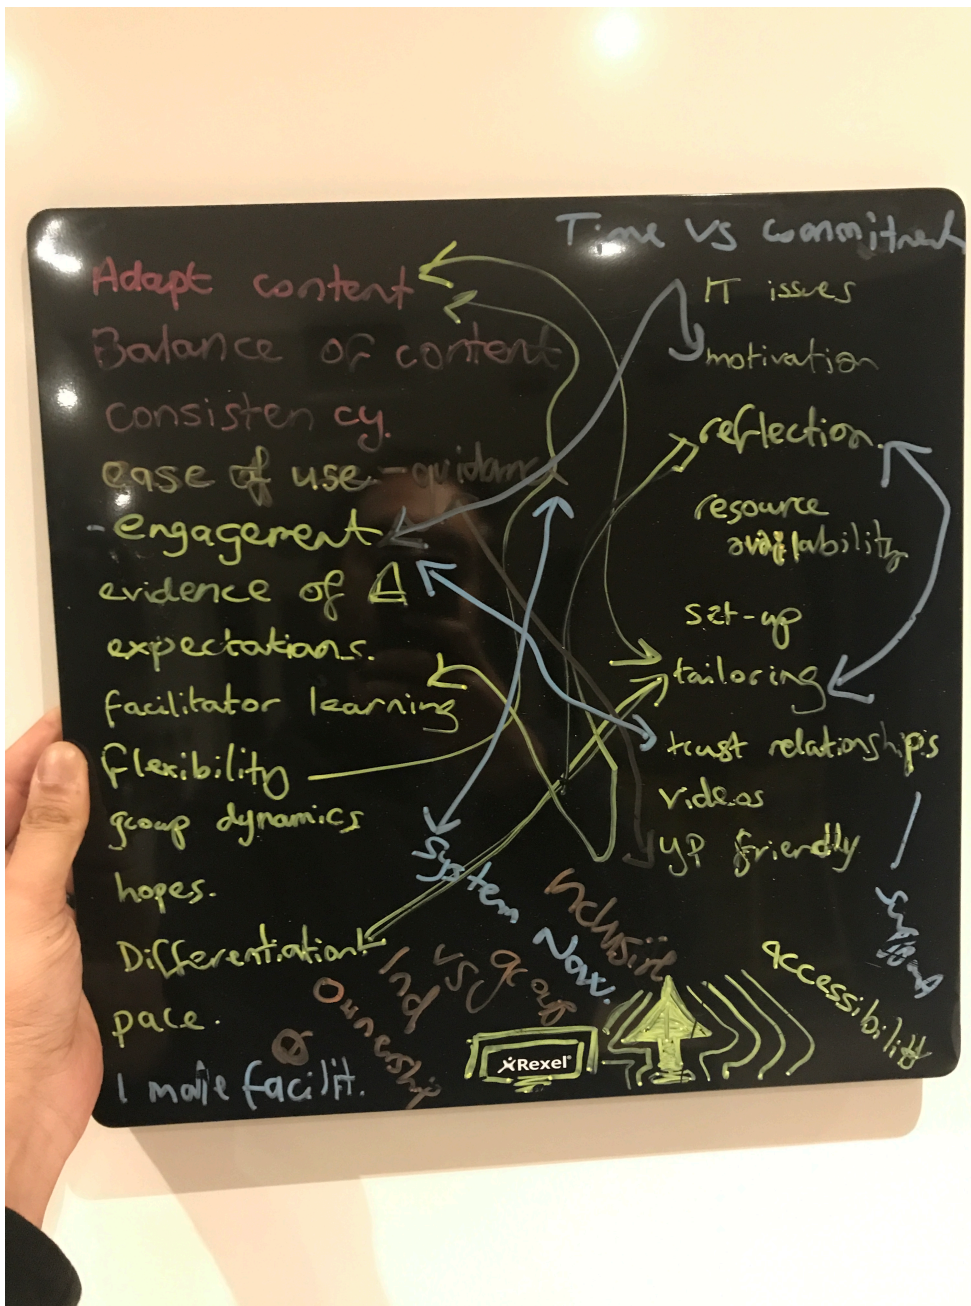 Time vs commitment
Adapt content
Balance of content
consistency.
ease of use - guidance
- engagement
evidence of Δ
expectations.
facilitator learning
flexibility
group dynamics
hopes.
Differentiation
pace.
1 male facilit.
IT issues
motivation
reflection.
resource
availability
set-up
tailoring
trust relationships
videos
YP friendly
System Now.
Inclusion
Ind vs group
Ownership
accessibility
Rexel